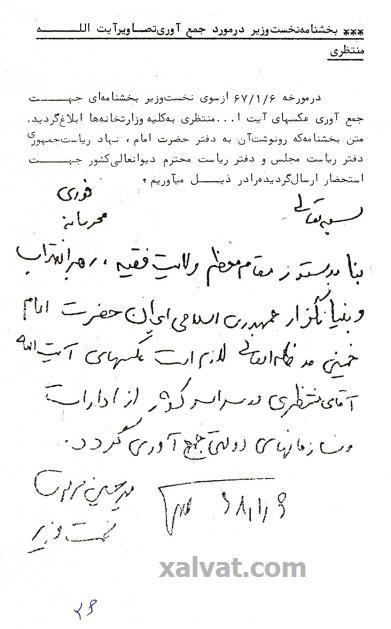 *** بخشنامه نخست وزیر درمورد جمع آوری تصاویر آیت اللـــه
منتظری
درمورخه ۶۷/۱/۶ ازسوی نخست وزیر بخشنامه‌ای جهـــت
جمع آوری عکسهای آیت ا...منتظری به‌کلیه وزارتخانه‌ها ابلاغ‌گردید.
متن بخشنامه که رونوشت آن به دفتر حضرت امام ، نهاد ریاست‌جمهوری
دفتر ریاست مجلس و دفتر ریاست محترم دیوانعالی‌کشور جهـــت
استحضار ارسال‌گردیده‌را در ذیـــل میآوریم .
فوری
بسمه تعالی
محرمانه
بنا بدستور مقام معظم ولایت فقیه ، رهبر انقلاب
و بنیانگزار جمهوری اسلامی ایران حضرت امام
خمینی مد ظله العالی لازم است عکسهای آیت الله
آقای منتظری در سراسر کشور از ادارات
و سازمانهای دولتی جمع آوری گردد.
میرحسین موسوی
۶۸/۱/۶
نخست وزیر
xalvat.com
۲۶